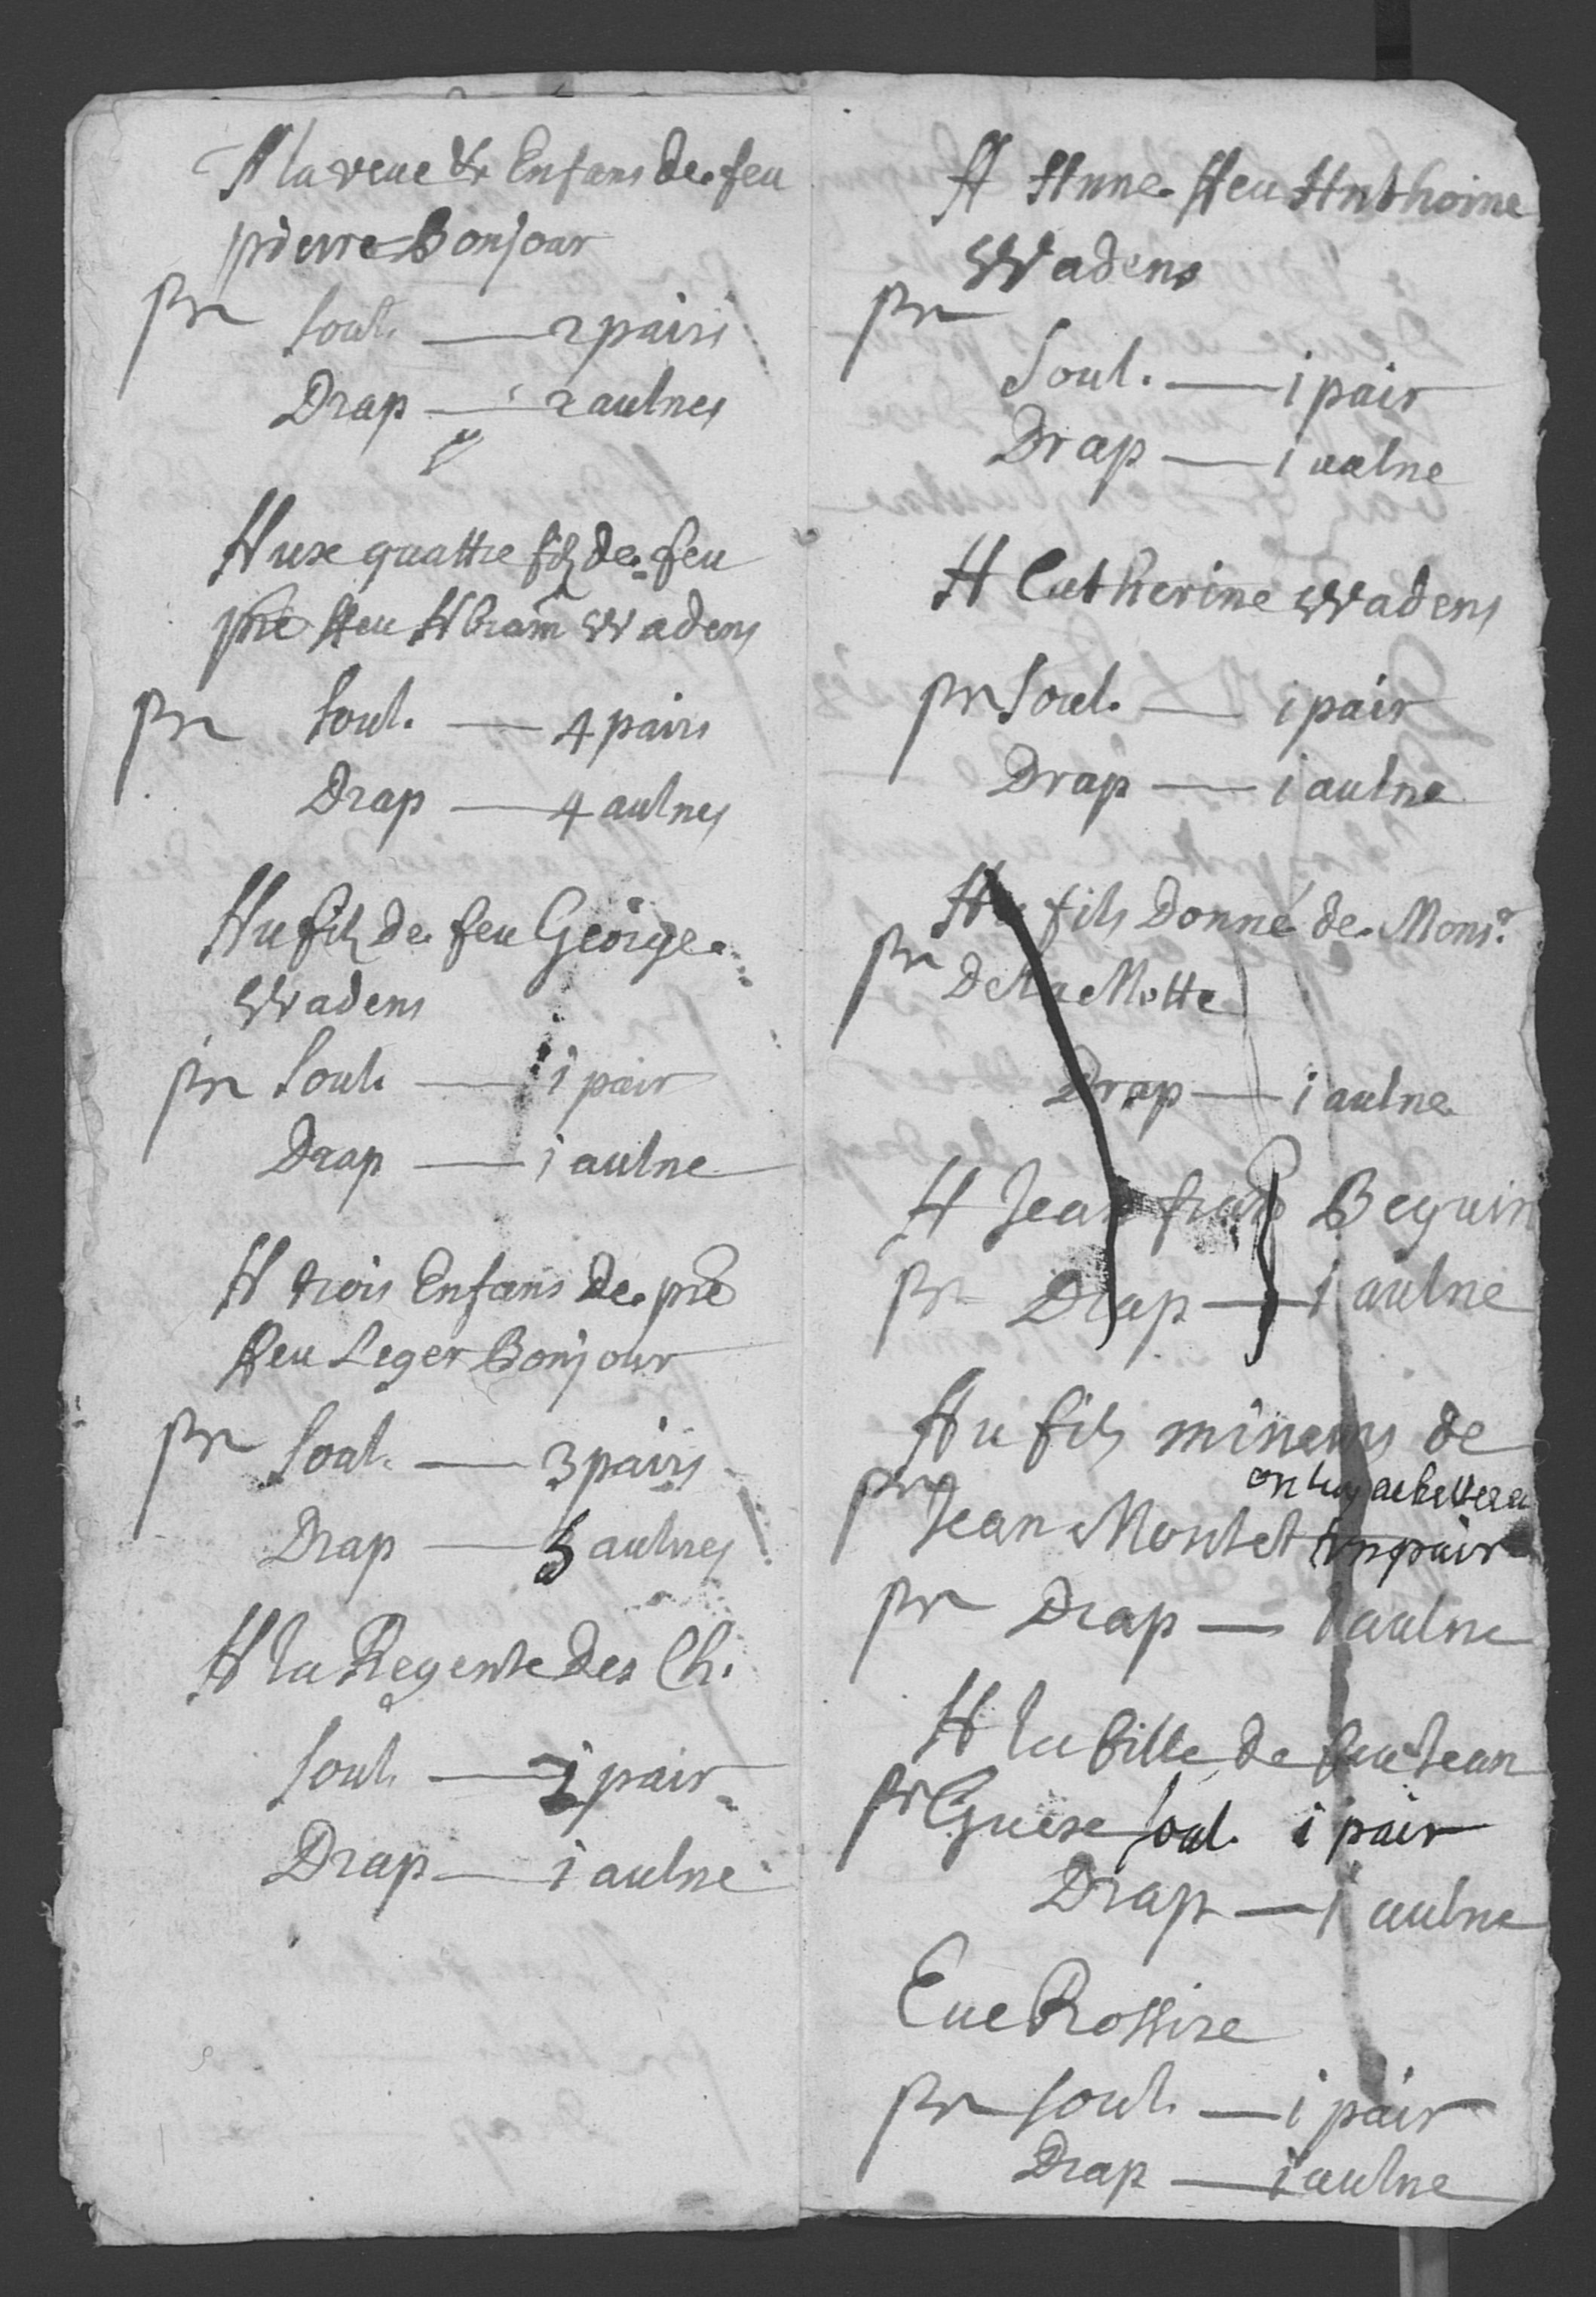 A la veue & Enfans de feu
pierre Bonjour
pr Soul. — 2 pairs
Drap — 2 aulnes
Aux quattre filz de feu
pre feu Abram Wadens
pr Soul. — 4 pairs
Drap — 4 aulnes
Au filz de feu George
Wadens
pr Soul. — 1 pair
Drap — 1 aulne
A trois Enfans de pre
feu Leger Bonjour
pr Soul. — 3 pairs
Drap — 3 aulnes
A la Regente des Ch.
Soul. — 1 pair
Drap — 1 aulne
A Anne feu Anthoine
Wadens
pr
Soul. — 1 pair
Drap — 1 aulne
A Catherine Wadens
pr Soul. — 1 pair
Drap — 1 aulne
Au fils Donné de Monsr
pr De la Motte
Drap — 1 aulne
A Jean Beguin
pr Drap — 1 aulne
Au fils de
on luy achettera
pr Jean Montet un pair
pr Drap — 1 aulne
A la fille de feu Jean
pr Guexe Soul. 1 pair
Drap — 1 aulne
Eue Rossire
pr Soul. — 1 pair
Drap — 1 aulne